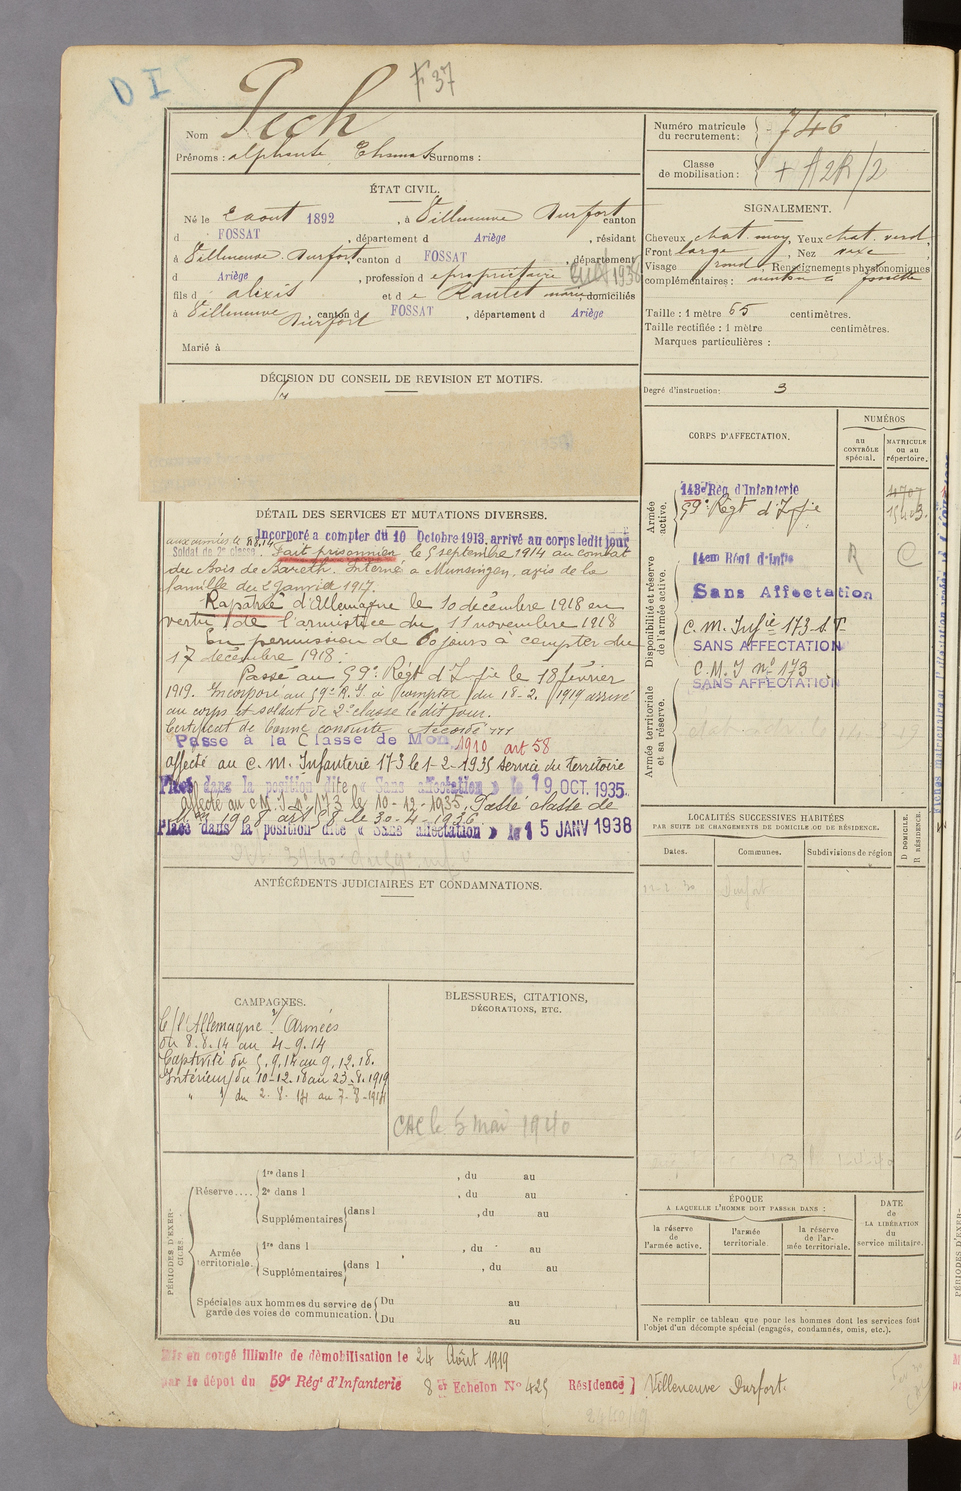 DI
F 37
Nom Pech
Prénoms : alphonse Surnoms :
Numéro matricule du recrutement : 746
Classe de mobilisation :
ÉTAT CIVIL.
Né le 2 aout 1892, à Villeneuve Durfort canton
d FOSSAT, département d Ariège, résidant
à Villeneuve Durfort, canton d FOSSAT, département
d Ariège, profession d propriétaire
fils d alexis et d e Rautet domiciliés
à Villeneuve Durfort, canton d FOSSAT, département d Ariège
Marié à
SIGNALEMENT.
Cheveux chat. moy, Yeux chat. verd.
Front large, Nez vexe
Visage rond, Renseignements physionomiques
complémentaires : menton à fossette
Taille : 1 mètre 65 centimètres.
Taille rectifiée : 1 mètre centimètres.
Marques particulières :
Degré d'instruction : 3
DÉCISION DU CONSEIL DE REVISION ET MOTIFS.
DÉTAIL DES SERVICES ET MUTATIONS DIVERSES.
Incorporé a compter du 10 Octobre 1913, arrivé au corps ledit jour
aux armées le 8.8.14
Soldat de 2e classe. Fait prisonnier le 5 septembre 1914 au combat
du bois de Bareth. Interné à Munsingen, avis de la
famille du 2 Janvier 1917.
Rapatrié d'Allemagne le 10 décembre 1918 en
vertu de l'armistice du 11 novembre 1918
En permission de 60 jours à compter du
17 décembre 1918.
Passé au 59e Régt d'Inf ie le 18 février
1919. Incorporé au 59e R.I. à compter du 18-2.1919 arrivé
au corps et soldat de 2e classe le dit jour.
Certificat de bonne conduite Accordé
Passé à la Classe de Mon 1910 art 58
affecté au C.M. Infanterie 173 le 1-2-1935 service du territoire
Placé dans la position dite « Sans affectation » le 19 OCT. 1935
affecté au C M I n° 173 le 10-12-1935, Passé classe de
Mon 1908 art 58 le 30-4-1936.
Placé dans la position dite « Sans affectation » le 15 JANV 1938
CORPS D'AFFECTATION.
NUMÉROS
au CONTRÔLE spécial.
MATRICULE ou au répertoire.
Armée active.
143e Rég d'Infanterie 4707
59e Régt d'Inf ie
Disponibilité et réserve de l'armée active.
14em Régt d'Infie R C
Sans Affectation
C. M. Infie 173 S.T
SANS AFFECTATION
C. M. I n° 173
SANS AFFECTATION
Armée territoriale et sa réserve.
LOCALITÉS SUCCESSIVES HABITÉES
PAR SUITE DE CHANGEMENTS DE DOMICILE OU DE RÉSIDENCE.
Dates.
Communes.
Subdivisions de région
D DOMICILE.
R RÉSIDENCE.
Durfort
ANTÉCÉDENTS JUDICIAIRES ET CONDAMNATIONS.
CAMPAGNES.
C/ l'Allemagne Armées
du 8.8.14 au 4-9.14
Captivité du 5.9.14 au 9.12.18.
Intérieur du 10-12.18 au 23-8.1919
" du 2-8-14 au 7-8-1914
BLESSURES, CITATIONS,
DÉCORATIONS, ETC.
CAC le 5 mai 1940
PÉRIODES D'EXERCICES.
Réserve.... 1re dans l , du au
2e dans l , du au
Supplémentaires dans l , du au
Armée territoriale. 1re dans l , du au
Supplémentaires dans l , du au
Spéciales aux hommes du service de garde des voies de communication. Du au
Du au
ÉPOQUE
A LAQUELLE L'HOMME DOIT PASSER DANS :
la réserve de l'armée active.
l'armée territoriale.
la réserve de l'armée territoriale.
DATE de LA LIBÉRATION du service militaire.
Ne remplir ce tableau que pour les hommes dont les services font
l'objet d'un décompte spécial (engagés, condamnés, omis, etc.).
Mis en congé illimité de démobilisation le 24 Août 1919
par le dépot du 59e Régt d'Infanterie 8e Echelon N° 425 Résidence Villeneuve Durfort.